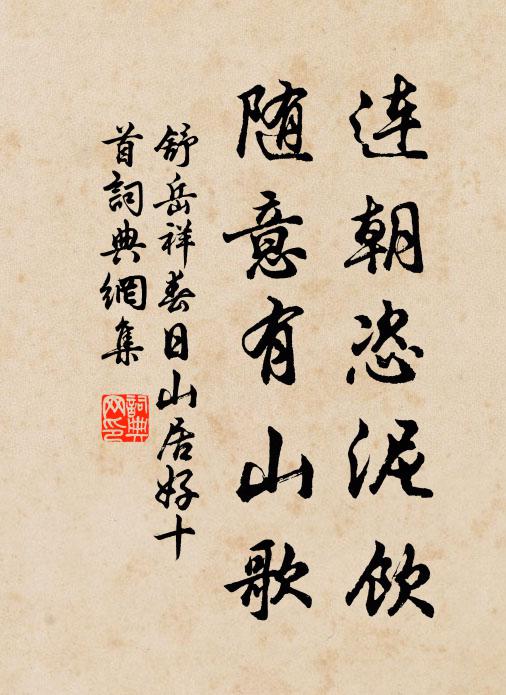 連朝恣泥飲
随意有山歌
舒岳祥春日山居好十
首詞典網集
詞典网印